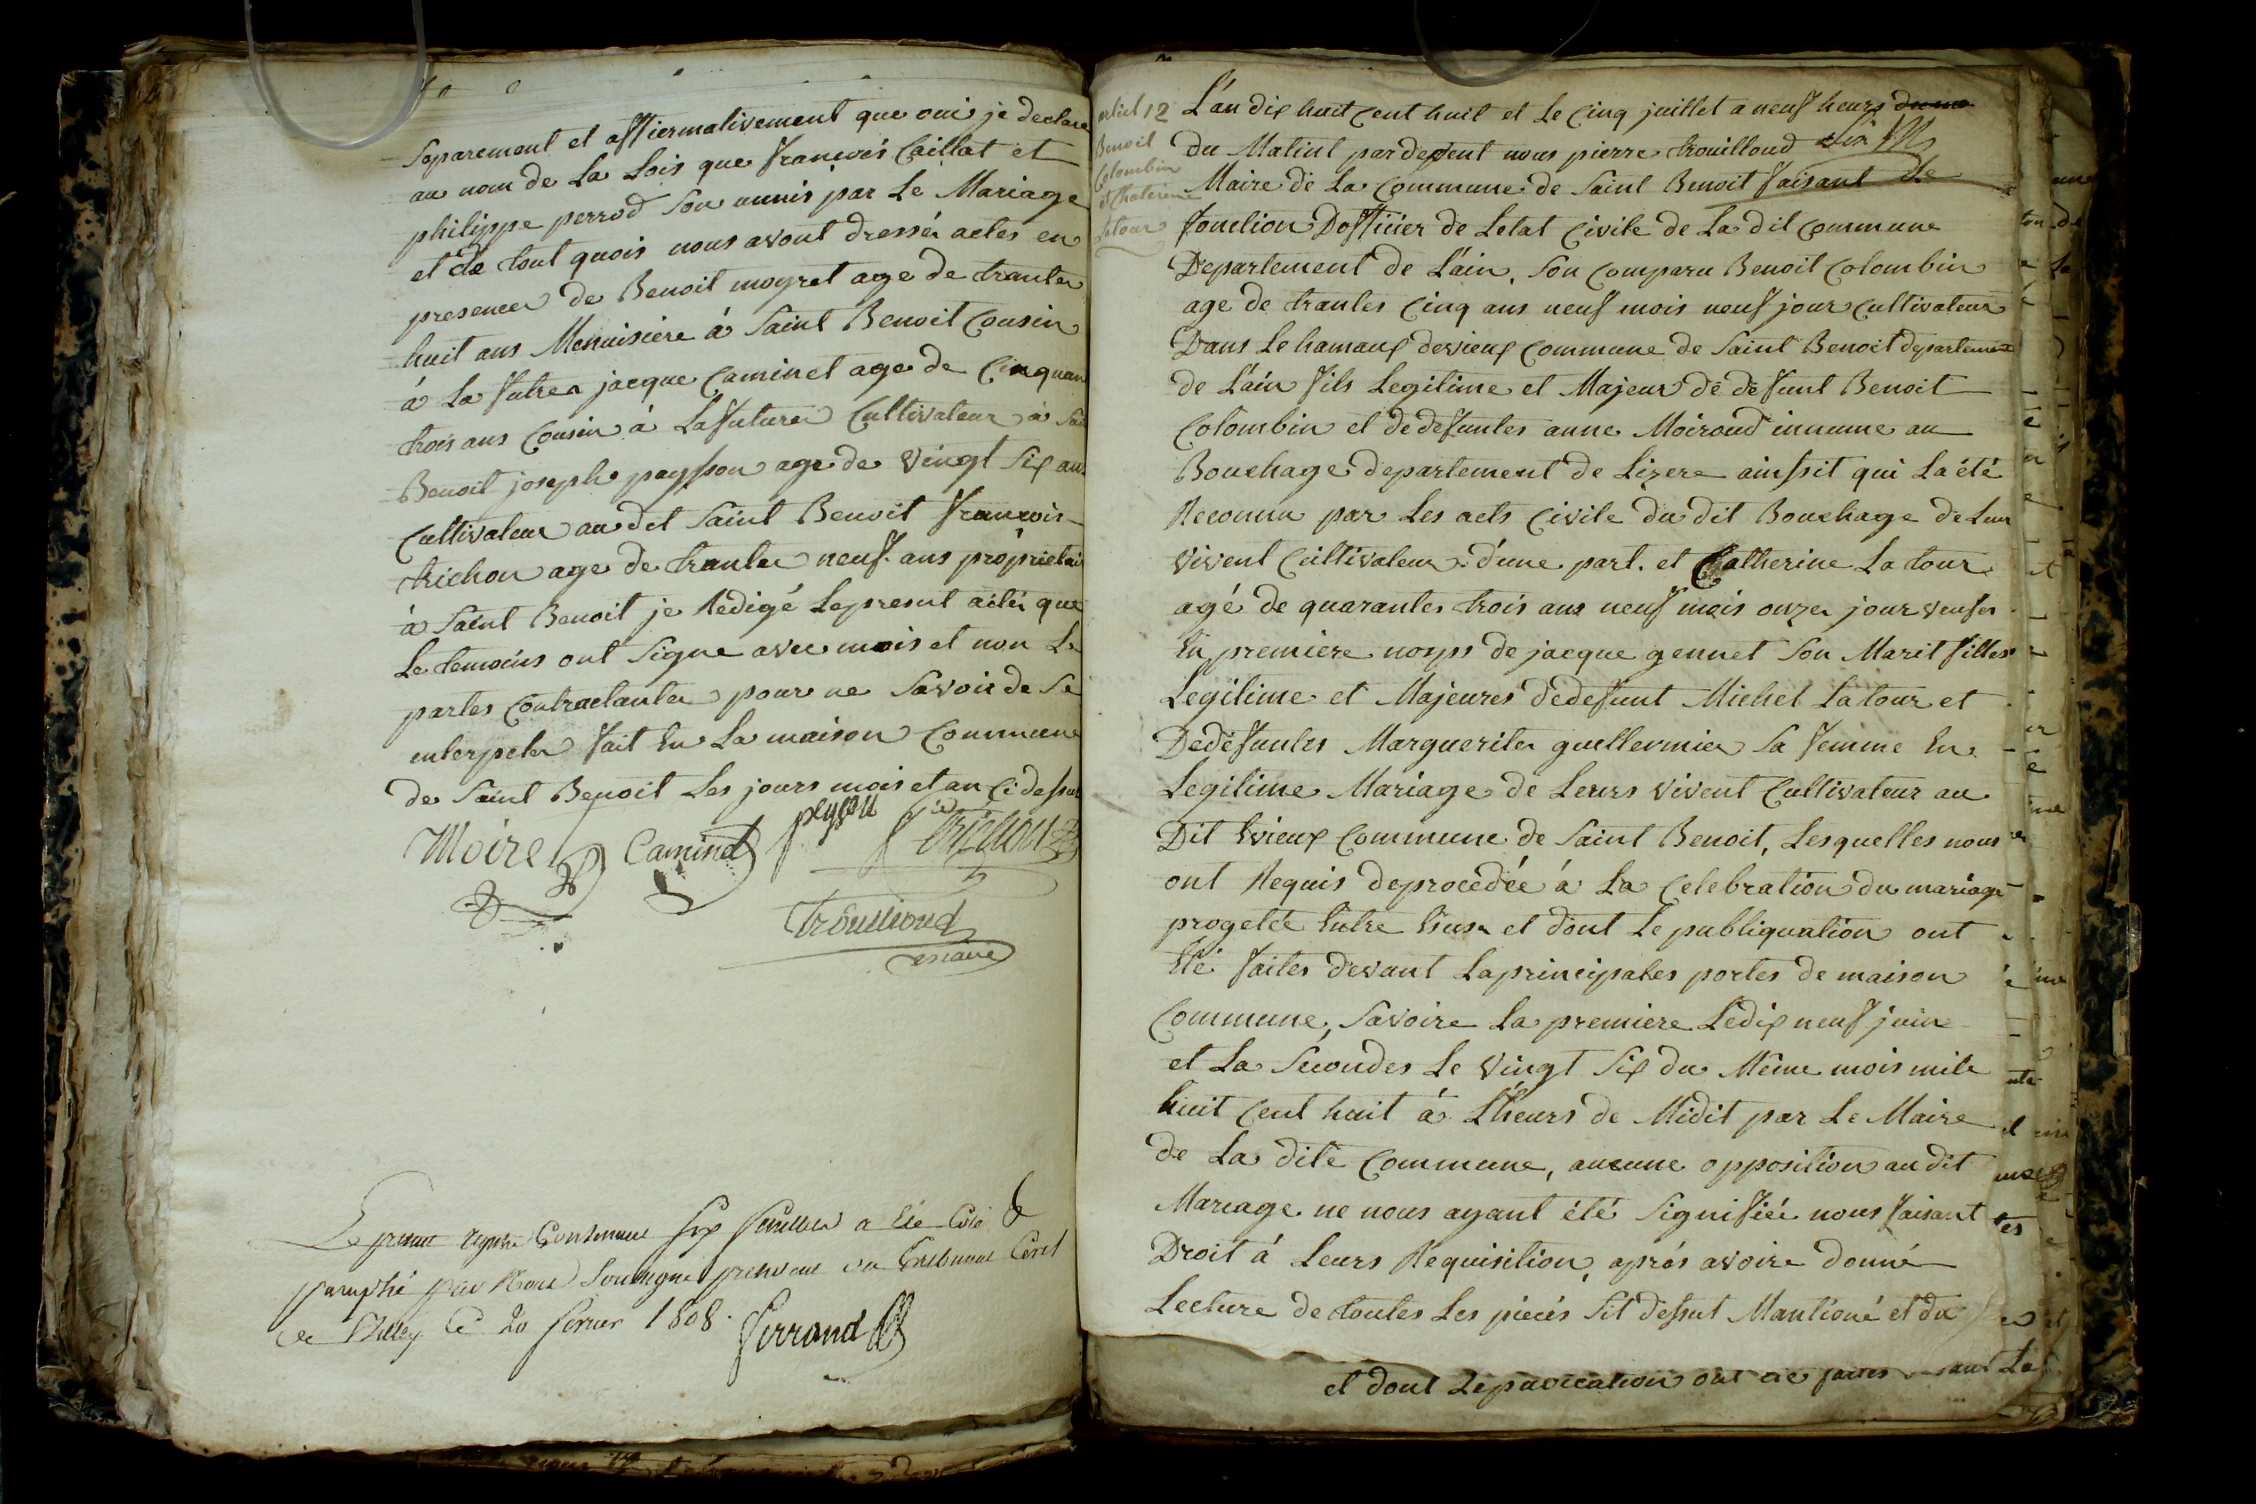 Separement et affiermativement que oui je declare
au nom de La Lois que francois Caillat et
philippe perrod Son unnis par Le Mariage
et de tout quois nous avont dressér actes en
presences de Benoit moyret age de trantes
huit ans Menuisiere á Saint Benoit Cousin
á La futres jacque Caminet age de Cinquan
trois ans Cousin á La futures Cultivateur á Sai
Benoit joseph paysson age de vingt Six ans
Cultivateur au dit Saint Benoit francois
trichon age de trantes neuf ans proprietai
á Saint Benoit je Redigé Lepresent actés que
Le temoins ont Signe avec mois et non Le
partes Contractantes pour ne Savoir de Se
enterpeler fait En La maison Commune
de Saint Benoit Les jours mois et an Ci dessut
Moiret Caminet peysson trichon
trouilloud
maire
Le present registre Contenant Six feuillets a été Coté &
paraphé par Nous Soussigné president du Tribunal Civil
de Belley Ce 20 fevrier 1808. ferrand
articl 12
Benoit
Colombin
et Chaterine
Latour
L'an dix huit Cent huit et Le Cinq juillet a neuf heurs du ma
du Matint pardevent nous pierre trouilloud
Maire de La Commune de Saint Benoit faisant de
fonction Dofficier de Letat Civile de La dit Commune
Departement de L'ain, Son Comparu Benoit Colombin
age de trantes Cinq ans neuf mois neuf jour Cultivateur
Dans Le hamaux devieux Commune de Saint Benoit departement
de L'ain fils Legitime et Majeur de defunt Benoit
Colombin et dedefuntes anne Moiroud innume au
Bouchage departement de Lizere ainssit qui La été
Reconnu par Les acts Civile du dit Bouchage de Leur
vivent Cultivateur d'une part. et Catherine La tour
agé de quarantes trois ans neuf mois onzes jour veufes
En premiere nosps de jacque gennet Son Marit filles
Legitime et Majeures dedefunt Michel La tour et
Dedéfuntes Marguerites guillermier Sa femme En
Legitime Mariage de Leurs vivent Cultivateur au
Dit Evieux Commune de Saint Benoit, Lesquelles nous
ont Requis deprocédée á La Celebration du mariage
progetée Entre Eiuse et dont Le publiquation ont
Eté faites devant Laprincipales portes de maison
Commune, Savoire La premiere Ledix neuf juin
et La Secondes Le vingt Six du Même mois mile
huit Cent huit á L'heurs de Midit par Le Maire
de La dite Commune, aucune opposition au dit
Mariage ne nous ayant été Signifiéé nous faisant
Droit á Leurs Requisition, aprés avoire donné
Lecture de toutes Les piecés Sit dessut Mantioné et du
et dont Lepublication ont été faites devant La